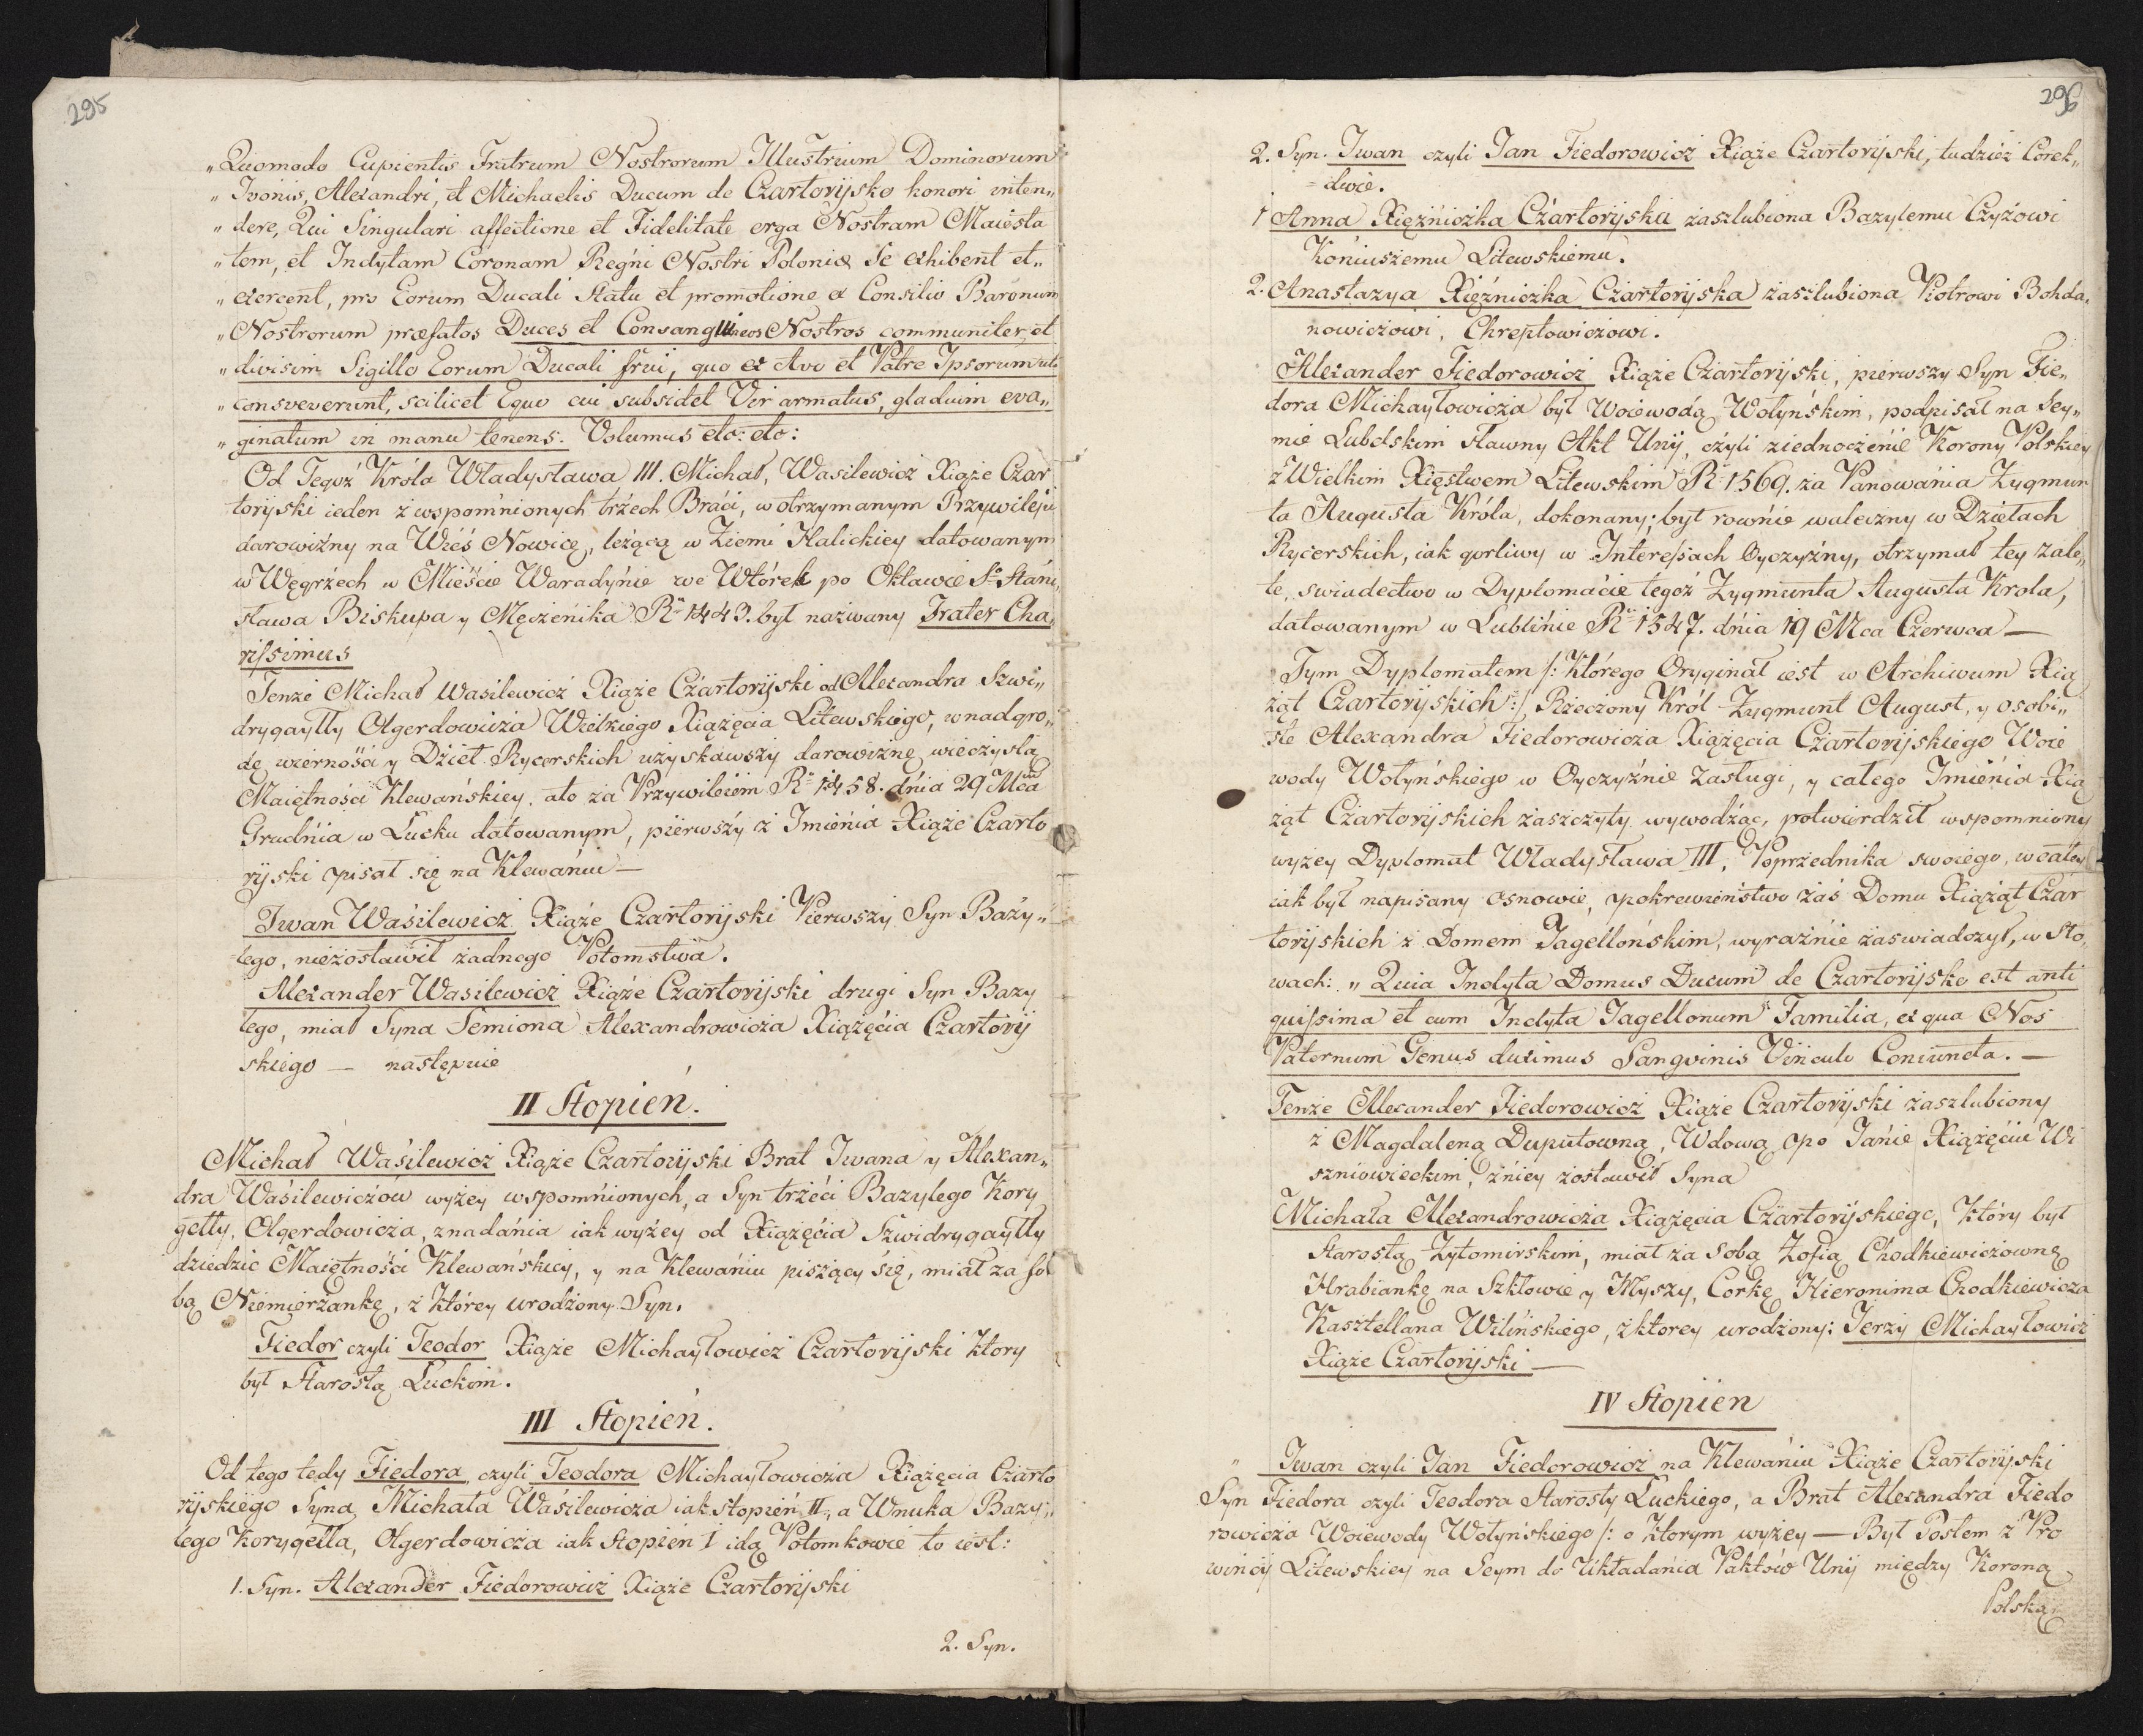 295
„Quomodo Cupientis Fratrum Nostrorum Illustrium Dominorum
„Ivonis, Alexandri, et Michaelis Ducum de Czartorÿsko honori inten„
„dere, Qui Singulari affectione et Fidelitate erga Nostram Maiesta
„tem, et Inclytam Coronam Regni Nostri Poloniæ Se exhibent et„
„exercent, pro Eorum Ducali Statu et promotione ex Consilio Baronum
„Nostrorum præfatos Duces et Consangvineos Nostros communiter et
„divisim Sigillo Eorum Ducali frui, quo ex Avo et Patre Ipsorum uti
„consveverunt, scilicet Equo cui subsidet Vir armatus, gladium eva„
„ginatum in manu tenens. Volumus etc: etc:
Od Tegoż Króla Władysława III. Michał, Wasilewicz Xiąże Czar
torÿski ieden z wspomnionych trzech Braci, w otrzymanym Przywileju
darowizny na Wieś Nowicę, leżącą w Ziemi Halickiey datowanym
w Węgrzech w Mieście Waradynie we Wtórek po Oktawie S° Stani„
sława Biskupa y Męczenika R° 1443. był nazwany Frater Cha„
rissimus
Tenże Michał Wasilewicz Xiąże Czartorÿski od Alexandra Szwi„
drygayłły Olgerdowicza Wielkiego Xiążęcia Litewskiego, w nadgro„
dę wierności y Dzieł Rycerskich uzyskawszy darowiznę wieczystą
Maiętności Klewańskiey, a to za Przywileiem R° 1458. dnia 29 Mca
Grudnia w Łucku datowanym, pierwszy z Imienia Xiąże Czarto
rÿski pisał się na Klewaniu —
Iwan Wasilewicz Xiąże Czartorÿski Pierwszy Syn Bazy„
lego, niezostawił żadnego Potomstwa.
Alexander Wasilewicz Xiąże Czartorÿski drugi Syn Bazy
lego, miał Syna Semiona Alexandrowicza Xiążęcia Czartorÿ
skiego — następnie
II Stopień.
Michał Wasilewicz Xiąże Czartorÿski Brat Iwana y Alexan„
dra Wasilewiczów wyżey wspomnionych, a Syn trzeci Bazylego Kory
gełły, Olgerdowicza, z nadania iak wyżey od Xiążęcia Szwidrygayłły
dziedzic Maiętności Klewańskiey, y na Klewaniu piszący się, miał za so
bą Niemierzankę, z którey urodzony Syn.
Fiedor czyli Teodor Xiąże Michayłowicz Czartorÿski który
był Starostą Łuckim.
III Stopień.
Od tego tedy Fiedora czyli Teodora Michayłowicza Xiążęcia Czarto
rÿskiego Syna Michała Wasilewicza iak stopień II, a Wnuka Bazy„
lego Korygełła, Olgerdowicza iak Stopień I idą Potomkowie to iest:
1. Syn. Alexander Fiedorowicz Xiąże Czartorÿski
2. Syn.
296
2. Syn. Iwan czyli Jan Fiedorowicz Xiąże Czartorÿski, tudzież Corek„
= dwie.
1 Anna Xiężniczka Czartorÿska zaszlubiona Bazylemu Czyżowi
Koniuszemu Litewskiemu.
2. Anastazya Xiężniczka Czartorÿska zaszlubiona Piotrowi Bohda„
nowiczowi, Chreptowiczowi.
Alexander Fiedorowicz Xiąże Czartorÿski, pierwszy Syn Fie„
dora Michayłowicza był Woiewodą Wołyńskim, podpisał na Sey„
mie Lubelskim sławny Akt Unÿ, czyli ziednoczenie Korony Polskiey
z Wielkim Xięstwem Litewskim R° 1569. za Panowania Zygmun
ta Augusta Króla, dokonany; był rownie waleczny w Dziełach
Rycerskich, iak gorliwy w Interessach Oyczyzny, otrzymał tey zale„
te, swiadectwo w Dyplomacie tegoż Zygmunta Augusta Krola,
datowanym w Lublinie R° 1547. dnia 19 Mca Czerwca —
Tym Dyplomatem /: Którego Oryginał iest w Archiwum Xią
żąt Czartorÿskich :/ Rzeczony Król Zygmunt August, y osobi„
ste Alexandra Fiedorowicza Xiążęcia Czartorÿskiego Woie
wody Wołyńskiego w Oyczyźnie zasługi, y całego Imienia Xią
żąt Czartorÿskich zaszczyty wywodząc, potwierdził wspomniony
wyżey Dyplomat Władysława III, Poprzednika swoiego, w całey
iak był napisany osnowie, y pokrewieństwo zaś Domu Xiążąt Czar
torÿskich z Domem Jagellońskim, wyraźnie zaswiadczył, w Sło„
wach: „Quia Inclyta Domus Ducum de Czartorÿsko est anti
quissima et cum Inclyta Jagellonum Familia, ex qua Nos
Paternum Genus duximus Sangvinis Vinculo Coniuncta. —
Tenże Alexander Fiedorowicz Xiąże Czartorÿski zaszlubiony
z Magdaleną Duputowną, Wdową po Janie Xiążęciu Wi
szniowieckim, z niey zostawił Syna
Michała Alexandrowicza Xiążęcia Czartorÿskiego, Który był
Starostą Żytomirskim, miał za sobą Zofią Chodkiewiczownę
Hrabiankę na Szkłowie y Myszy, Corkę Hieronima Chodkiewicza
Kasztellana Wilińskiego, z ktorey urodzony: Jerzy Michayłowicz
Xiąże Czartorÿski —
IV Stopień
„ Iwan czyli Jan Fiedorowicz na Klewaniu Xiąże Czartorÿski
Syn Fiedora czyli Teodora Starosty Łuckiego, a Brat Alexandra Fiedo
rowicza Woiewody Wołyńskiego /: o ktorym wyżey — Był Posłem z Pro
wincÿ Litewskiey na Seym do Układania Paktów Unÿ między Koroną
Polską